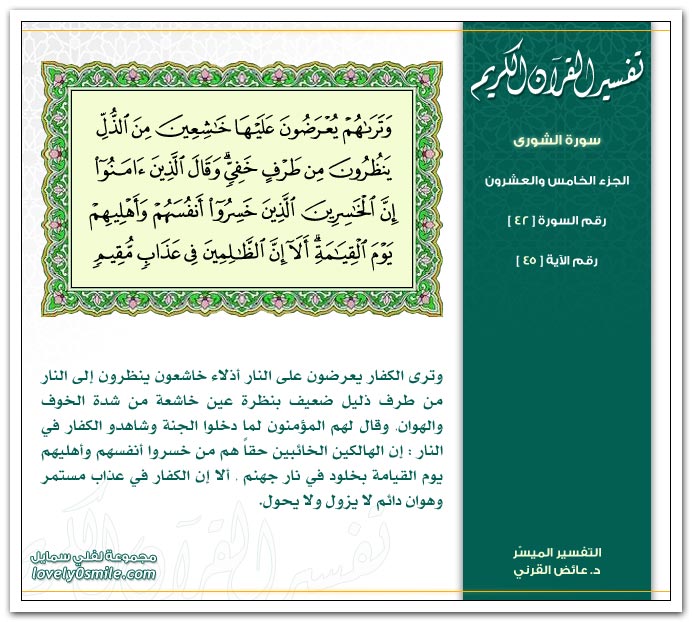 تفسير القرآن الكريم
سورة الشورى
الجزء الخامس والعشرون
رقم السورة [ ٤٢ ]
رقم الآية [ ٤٥ ]
وَتَرَىٰهُمْ يُعْرَضُونَ عَلَيْهَا خَٰشِعِينَ مِنَ ٱلذُّلِّ
يَنظُرُونَ مِن طَرْفٍ خَفِىٍّۗ وَقَالَ ٱلَّذِينَ ءَامَنُوٓا۟
إِنَّ ٱلْخَٰسِرِينَ ٱلَّذِينَ خَسِرُوٓا۟ أَنفُسَهُمْ وَأَهْلِيهِمْ
يَوْمَ ٱلْقِيَٰمَةِۗ أَلَآ إِنَّ ٱلظَّٰلِمِينَ فِى عَذَابٍ مُّقِيمٍ
وترى الكفار يعرضون على النار أذلاء خاشعون ينظرون إلى النار
من طرف ذليل ضعيف بنظرة عين خاشعة من شدة الخوف
والهوان، وقال لهم المؤمنون لما دخلوا الجنة وشاهدو الكفار في
النار : إن الهالكين الخائبين حقاً هم من خسروا أنفسهم وأهليهم
يوم القيامة بخلود في نار جهنم , ألا إن الكفار في عذاب مستمر
وهوان دائم لا يزول ولا يحول.
تفسير القرآن الكريم
التفسير الميسّر
د. عائض القرني
مجموعة لفلي سمايل
lovely0smile.com